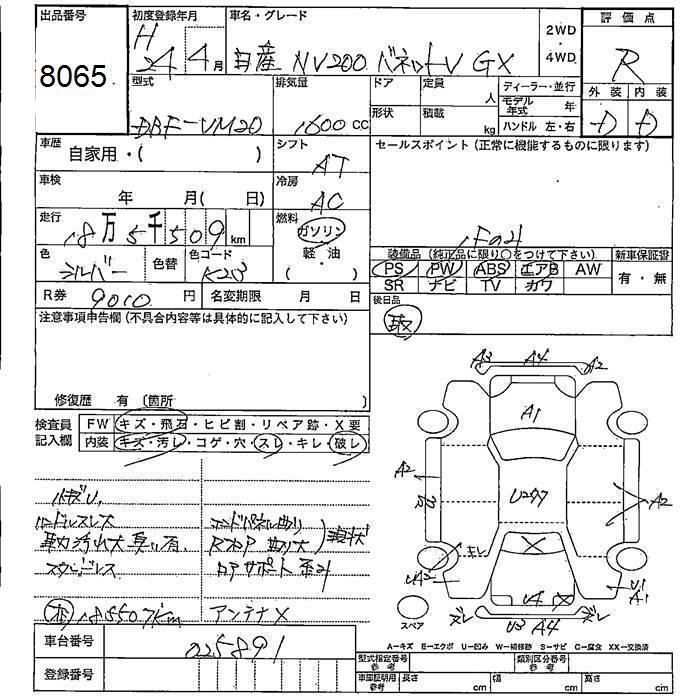 出品番号
8065
初度登録年月
H
24 4月
車名・グレード
日産 NV200 バネットV GX
2WD
・
4WD
評価点
R
外装 内装
D D
型式
DBF-VM20
排気量
1600cc
ドア
定員
人
形状
積載
kg
ディーラー・並行
モデル年式 年
ハンドル 左・右
車歴
自家用・( )
シフト
AT
セールスポイント (正常に機能するものに限ります)
1オーナー
車検
年 月( 日)
冷房
AC
走行
18万5千509km
燃料
ガソリン
軽・油
( )
色
シルバー
色替
色コード
K23
装備品 (純正品に限り○をつけて下さい)
新車保証書
PS PW ABS エアB AW
SR ナビ TV カワ
有・無
R券 9010円
名変期限 月 日
後日品
取
注意事項申告欄 (不具合内容等は具体的に記入して下さい)
修復歴 有 〔箇所
検査員
記入欄
FW キズ・飛石・ヒビ割・リペア跡・X要
内装 キズ・汚レ・コゲ・穴・スレ・キレ・破レ
ハンドルスレ
アンテナX
車台番号 025891
登録番号
A3 A4 A2
A1
A2
U297
A2
キレ
UA2
X
U4 X
U1
A1
ズレ
U3 A4
ズレ
スペア
A-キズ E-エクボ U-凹み W-補修跡 S-サビ C-腐食 XX-交換済
型式指定番号
参考
類別区分番号
参考
車庫証明用
参考
長さ cm
幅 cm
高さ cm